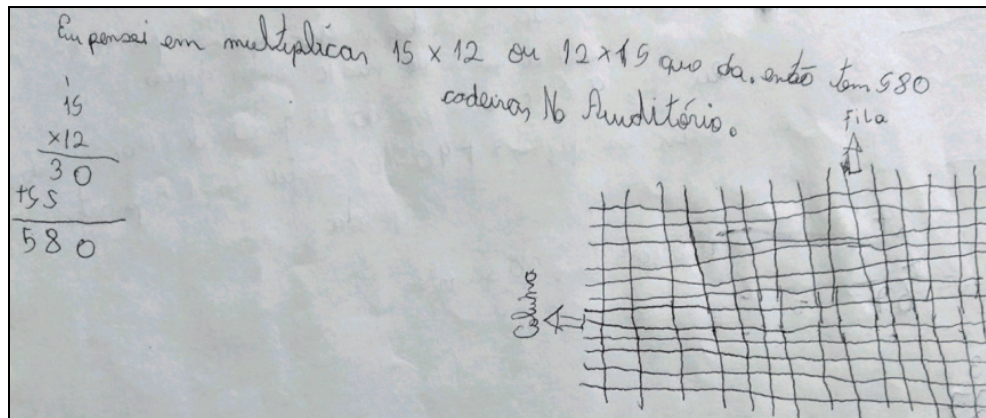 Eu pensei em multiplicar 15 x 12 ou 12 x 15 que da, então tem 580
cadeiras No Auditório.
1
15
x12
30
+55
580
Fila
Coluna